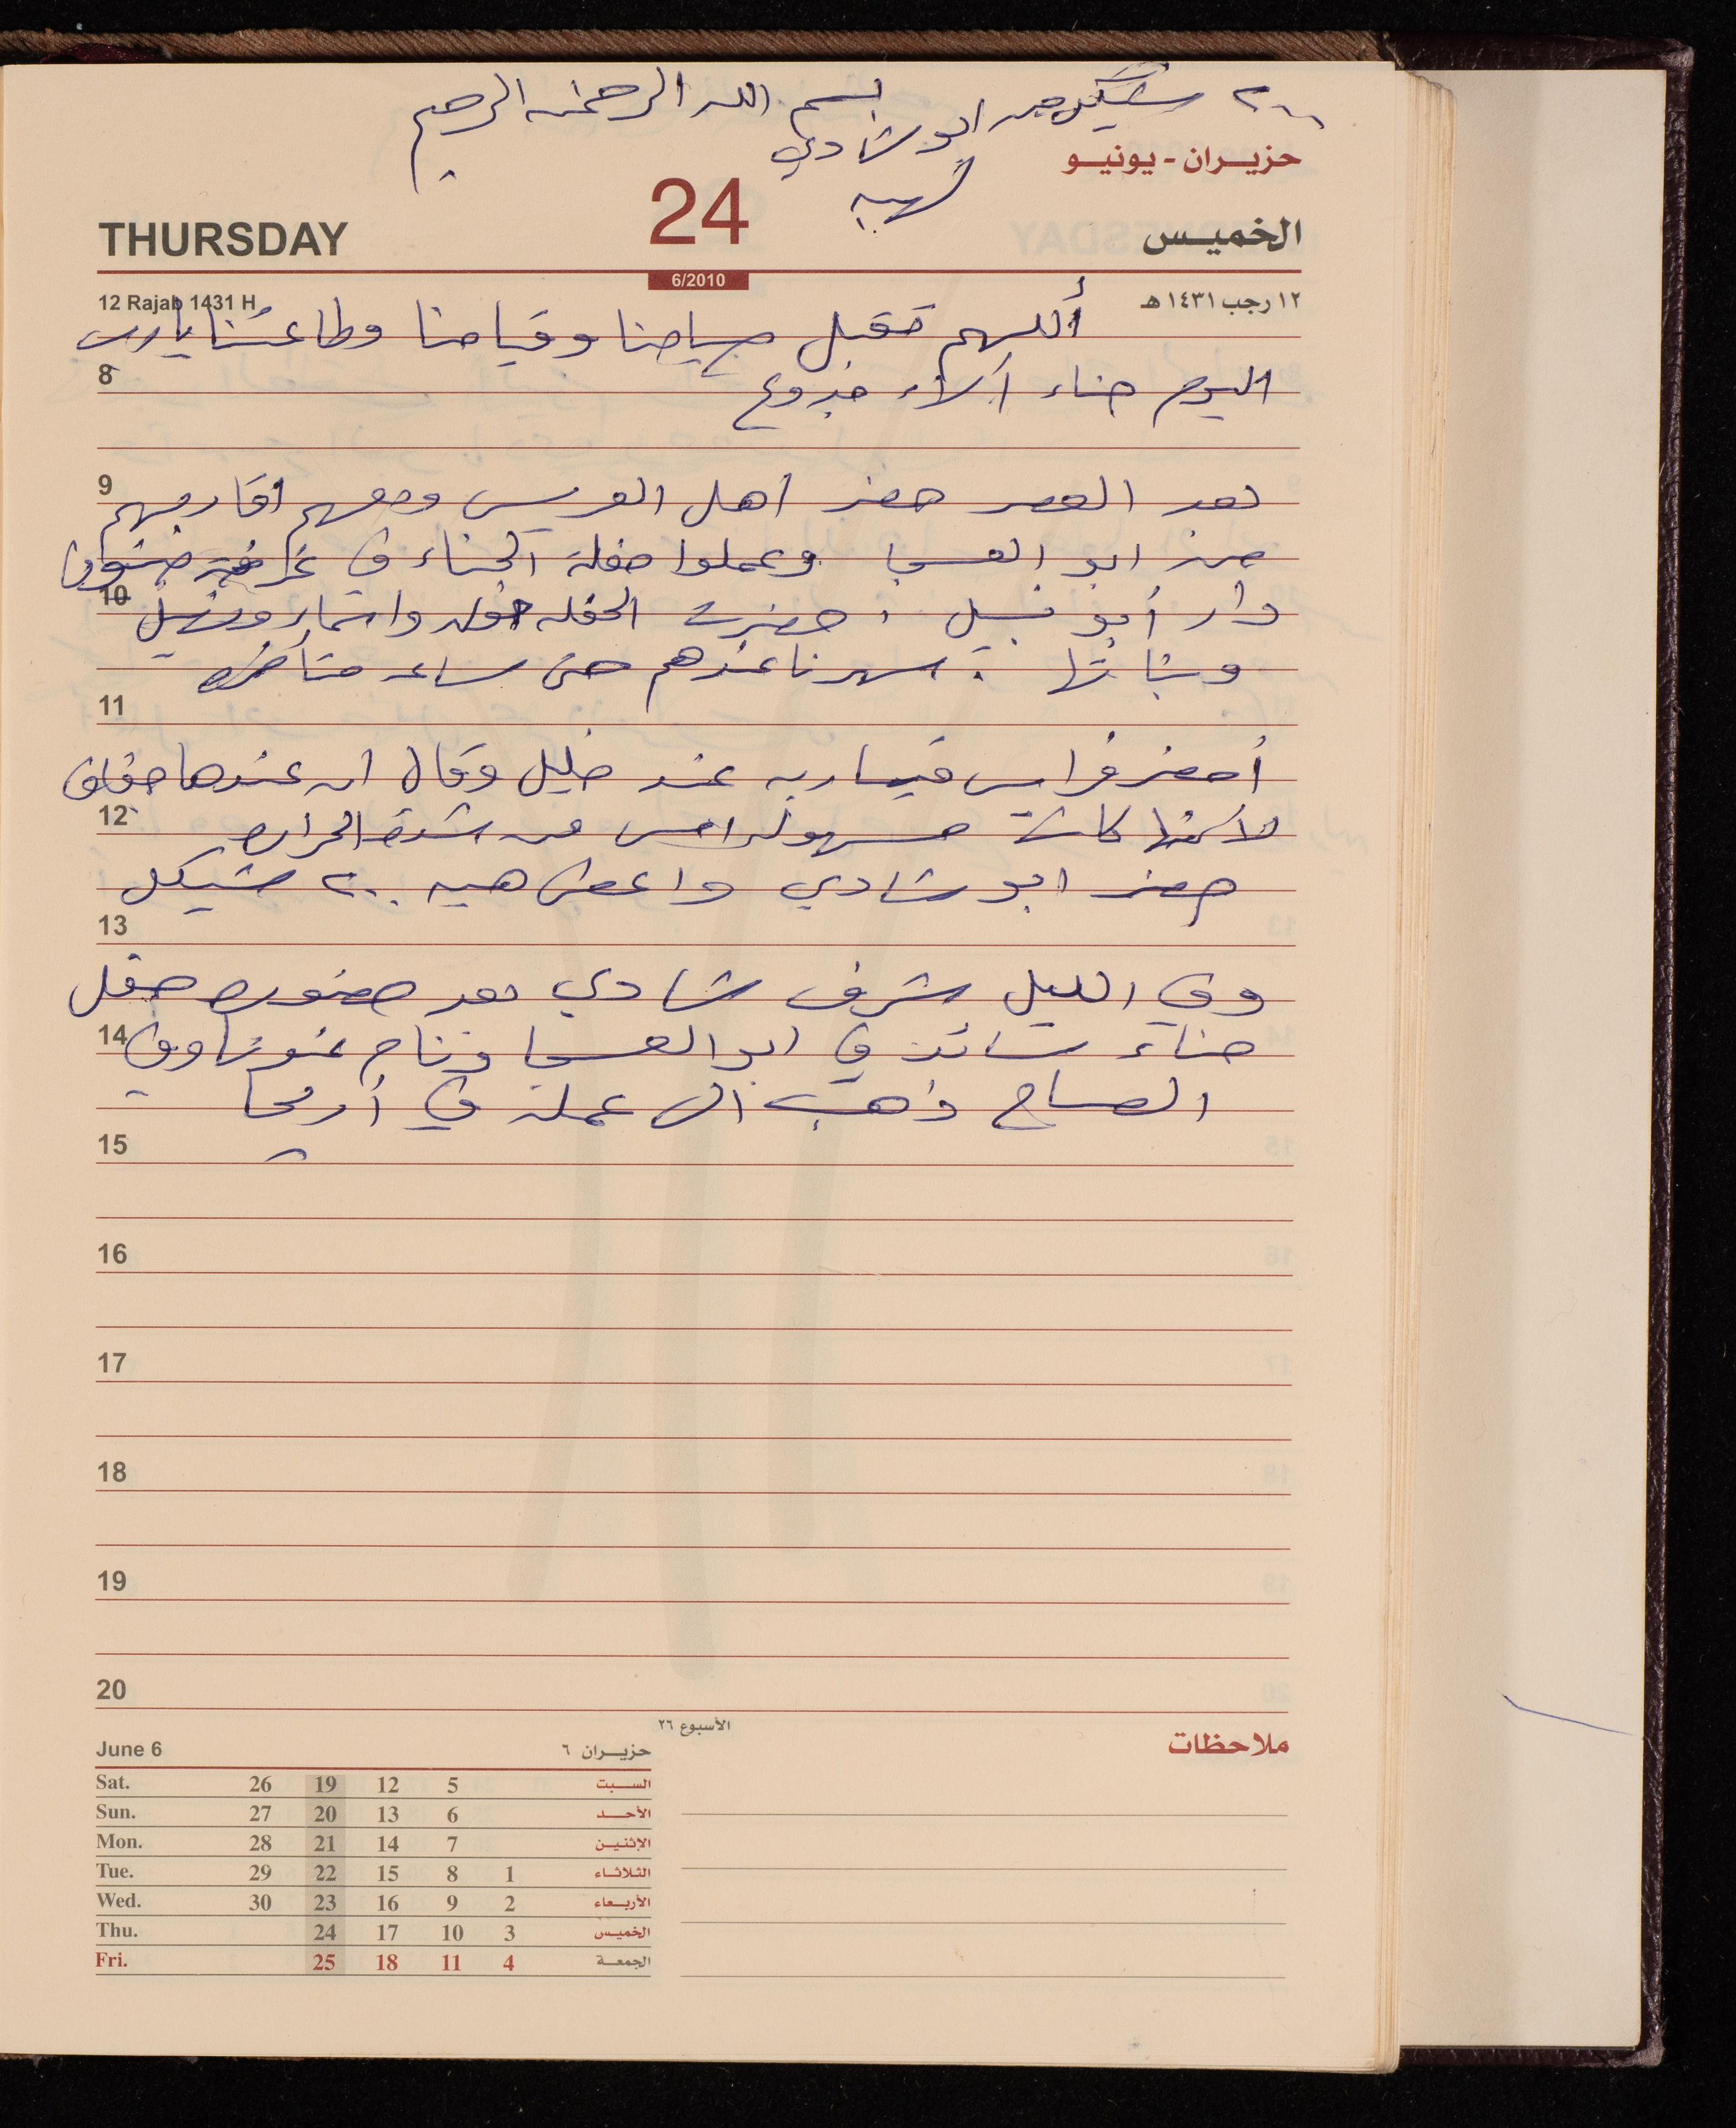 بسم الله الرحمن الرحيم
٢٠٠ شيكل من ابو شادي
لهبه
حزيران - يونيو
THURSDAY 24 الخميس
6/2010
12 Rajab 1431 H ١٢ رجب ١٤٣١ هـ
أللهم تقبل صيامنا وقيامنا وطاعتنا يارب
8
اليوم حناء آلاء جدوع
9
بعد العصر حضر اهل العريس ومعهم اقاربهم
من ابو العسجا وعملوا حفلة الحناء في غرفة
10
دار أبو نبيل . حضرت الحفله خوله واسمار
وبناتها . سهرنا عندهم حتى ساعه متأخره
11
أحضر فراس عند خليل وقال ان عندها
12
لأنها كانت امس من شدة الحراره
حضر ابو شادي واعطى هبه ٢٠٠ شيكل
13
وفي الليل شرف شادي بعد حضوره حفل
14
حناء في ابو العسجا ونام عندنا وفي
الصباح ذهب الى عمله في أريحا
15
16
17
18
19
20
الأسبوع ٢٦
ملاحظات
June 6 حزيران ٦
Sat. 26 19 12 5 السبت
Sun. 27 20 13 6 الأحد
Mon. 28 21 14 7 الإثنين
Tue. 29 22 15 8 1 الثلاثاء
Wed. 30 23 16 9 2 الأربعاء
Thu. 24 17 10 3 الخميس
Fri. 25 18 11 4 الجمعة